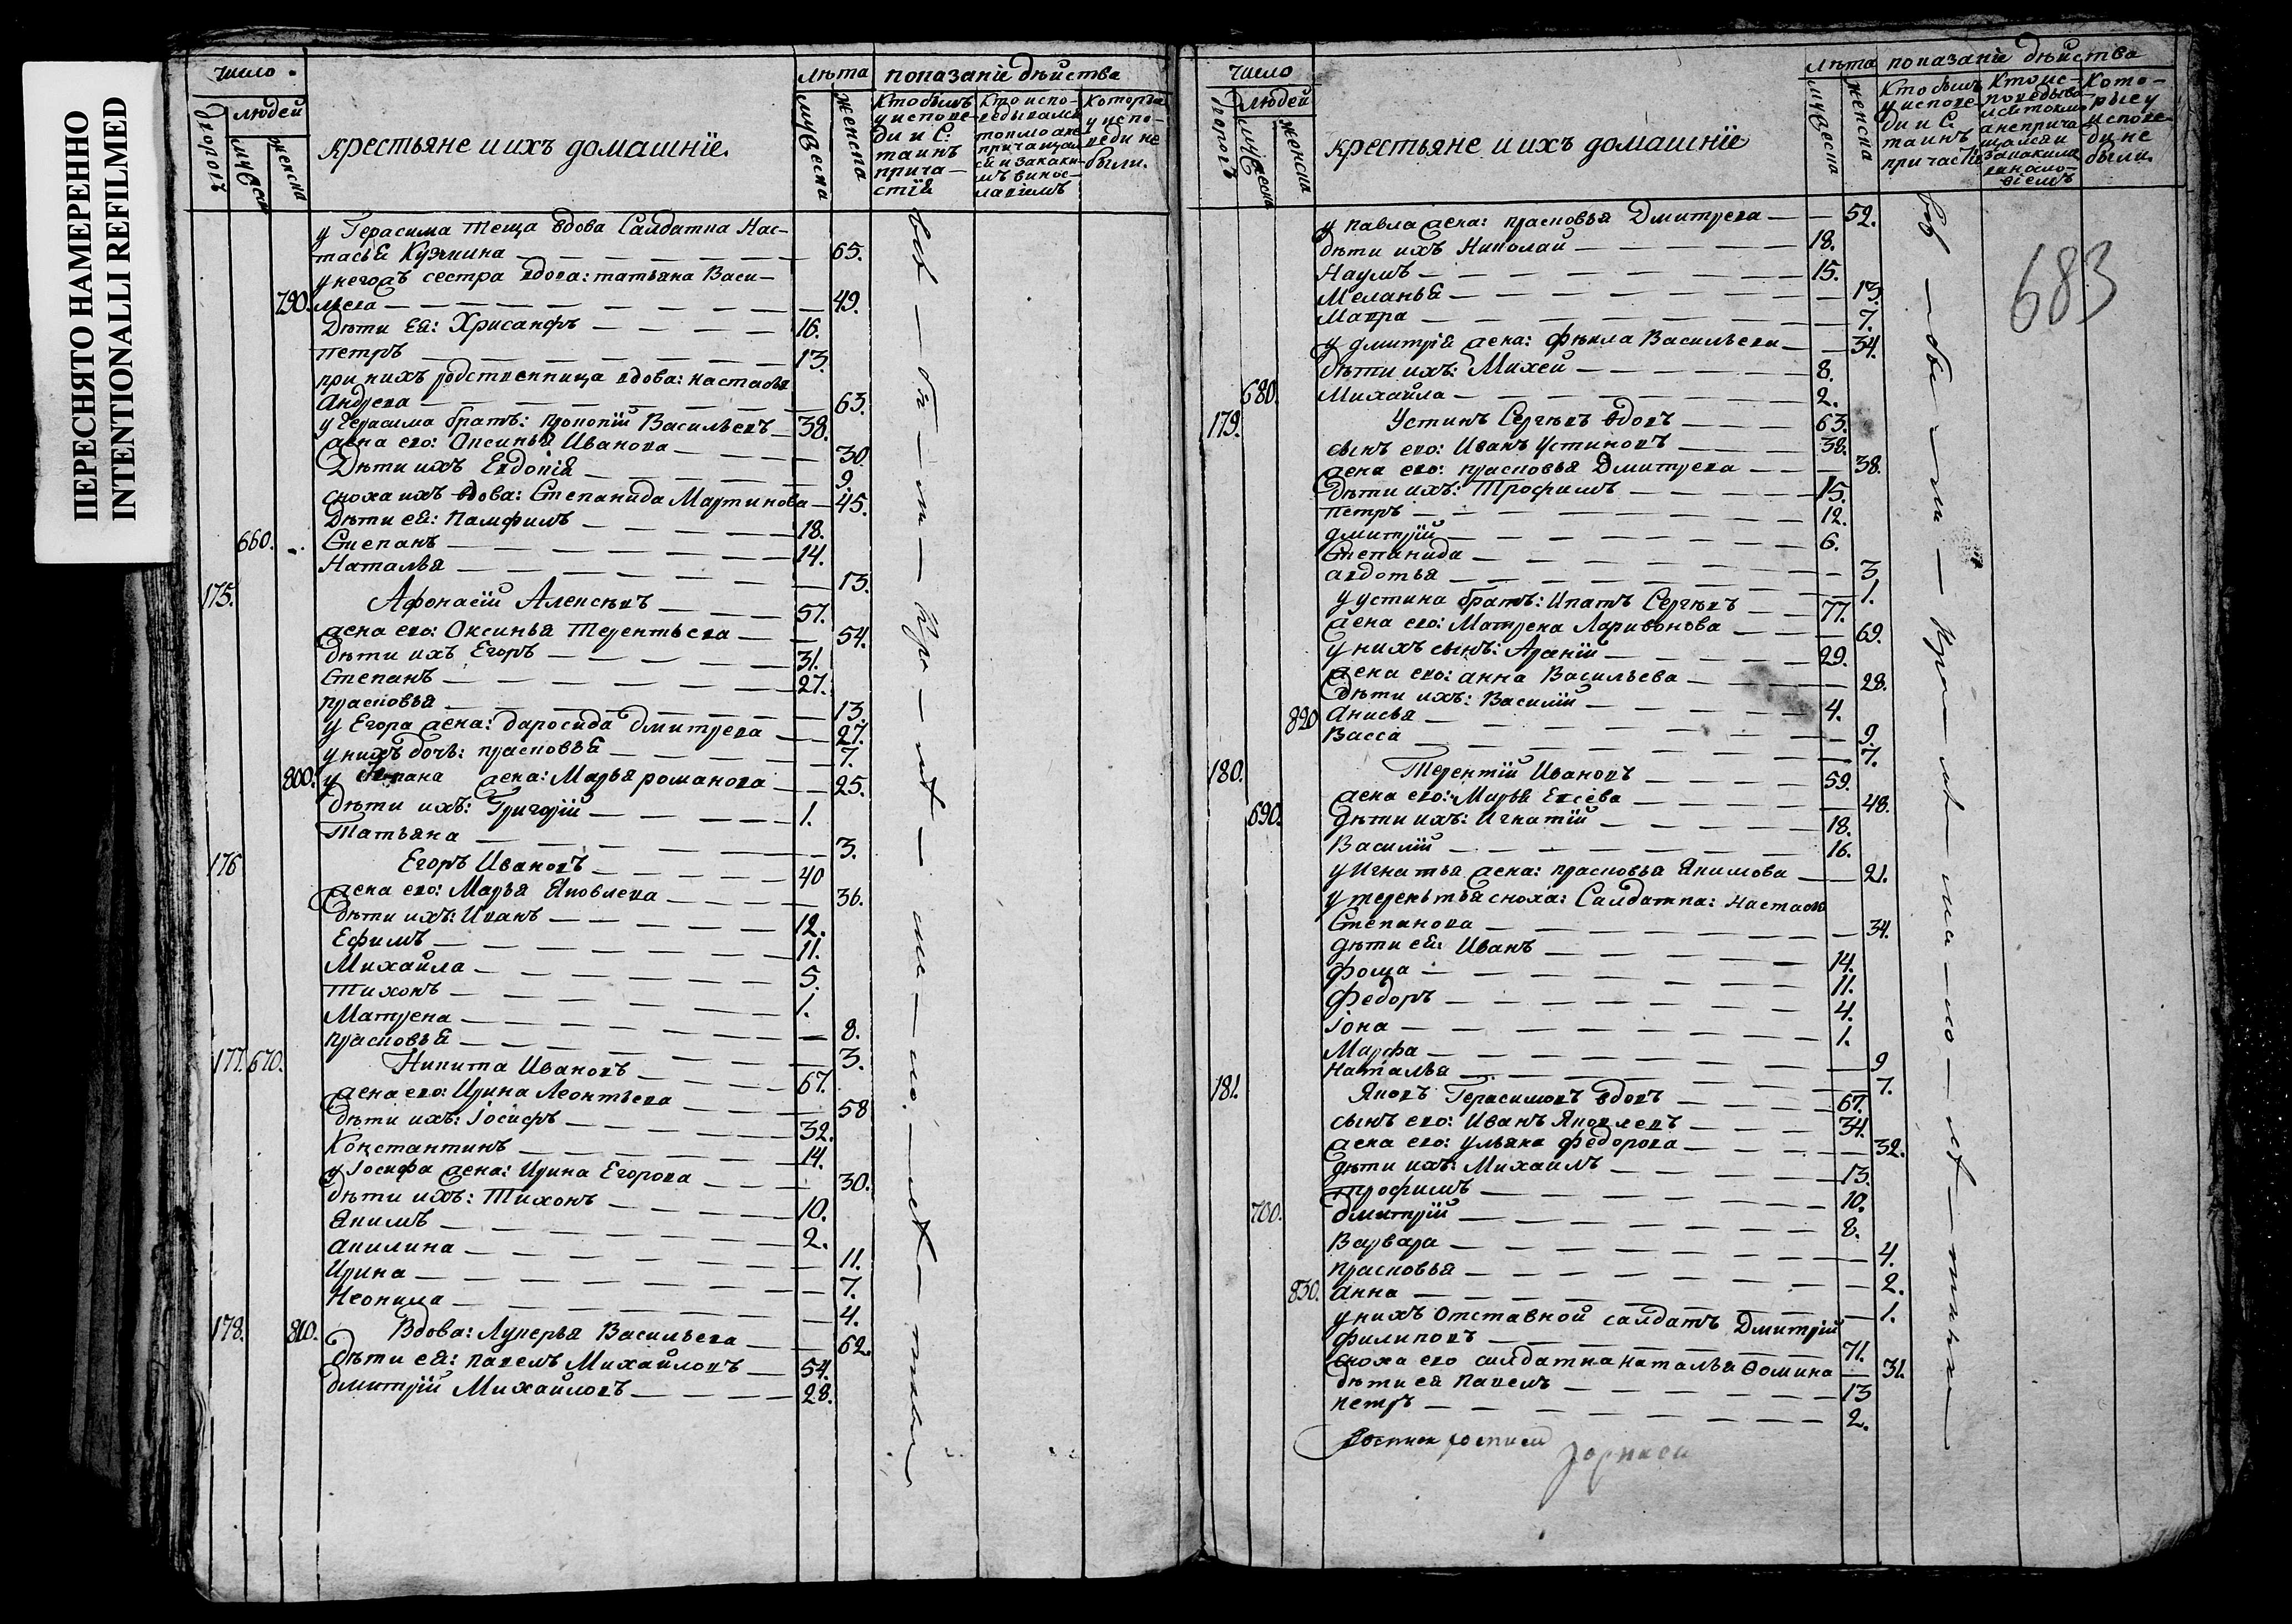 ПЕРЕСНЯТО НАМЕРЕННО
INTENTIONALLI REFILMED
число
людей
крестьяне и ихъ домашнїе.
лѣта
показанїе дѣйства
мужеска
женска
Кто былъ у исповеди и С. таинъ причастїя
Которыя у исповеди не были.
у Герасима теща вдова Салдатка Нас-
тасья Кузмина 65.
у негожъ сестра вдова: татьяна Васи-
790. льева 49.
Дѣти ея: Хрисанфъ 16.
петръ 13.
при нихъ родственница вдова: настасья
Андреева 63.
у Герасима братъ: прокопїй Васильевъ 38.
жена его: Оксинья Иванова 30.
Дѣти ихъ Евдокїя 9.
сноха ихъ вдова: Степанида Мартинова 45.
Дѣти ея: Памфилъ 18.
660. Степанъ 14.
Наталья 13.
175. Афонасїй Алексѣевъ 57.
жена его: Оксинья Терентьева 54.
дѣти ихъ Егоръ 31.
Степанъ 27.
прасковья 13.
у Егора жена: даросида дмитрева 27.
у нихъ дочь: прасковья 7.
800. у Степана жена: Марья романова 25.
дѣти ихъ: Григорїй 1.
Татьяна 3.
176 Егоръ Ивановъ 40
жена его: Марья Яковлева 36.
дѣти ихъ: Иванъ 12.
Ефимъ 11.
Михайла 5.
тихонъ 1.
Матрена 8.
прасковья 3.
177. 670. Никита Ивановъ 67.
жена его: Ирина Леонтьева 58
дѣти ихъ: Іосифъ 32.
Константинъ 14.
у Іосифа жена: Ирина Егорова 30.
дѣти ихъ: Тихонъ 10.
Якимъ 2.
акилина 11.
Ирина 7.
Неонила 4.
178. 810. Вдова: Лукерья Васильева 62.
дѣти ея: павелъ Михайловъ 54.
дмитрїй Михайловъ 28.
число
людей
крестьяне и ихъ домашнїе
лѣта
показанїе дѣйства
мужеска
женска
Кто былъ у исповеди и С. таинъ причастїе
Которые у исповеди не были.
683
у павла жена: прасковья Дмитрева 52.
дѣти ихъ Николай 18.
Наумъ 15.
Меланья 13.
Мавра 7.
у дмитрїя жена: фекла Васильева 34.
дѣти ихъ: Михей 8.
680. Михайла 2.
179. Устинъ Сергѣевъ вдовъ 63.
сынъ его: Иванъ Устиновъ 38.
жена его: прасковья Дмитрева 38.
дѣти ихъ: Трофимъ 15.
петръ 12.
дмитрїй 6.
Степанида 3
авдотья 1.
у устина братъ: Ипатъ Сергѣевъ 77.
жена его: Матрена Ларивонова 69.
у нихъ сынъ: Арҡїй 29.
жена его: анна Васильева 28.
дѣти ихъ: Василїй 4.
820 Анисья 9.
Васса 7.
180. Терентїй Ивановъ 59.
жена его: Марья Евсева 48.
690. дѣти ихъ: Игнатїй 18.
Василїй 16.
у Игнатья жена: прасковья Якимова 21.
у терентья сноха: Салдатка: настасья
Степанова 34.
дѣти ея: Иванъ 14.
фома 11.
федоръ 4.
Іона 1.
Марфа 9
Наталья 7.
181. Яковъ Герасимовъ вдовъ 67.
сынъ его: Иванъ Яковлевъ 34.
жена его: ульяна федорова 32.
дѣти ихъ: Михаилъ 13.
трофимъ 10.
700. дмитрїй 8.
Варвара 4.
прасковья 2.
830. анна 1.
у нихъ отставной салдатъ Дмитрїй
филиповъ 71.
сноха его салдатка наталья Ѳомина 31.
дѣти ея павелъ 13
петръ 2.